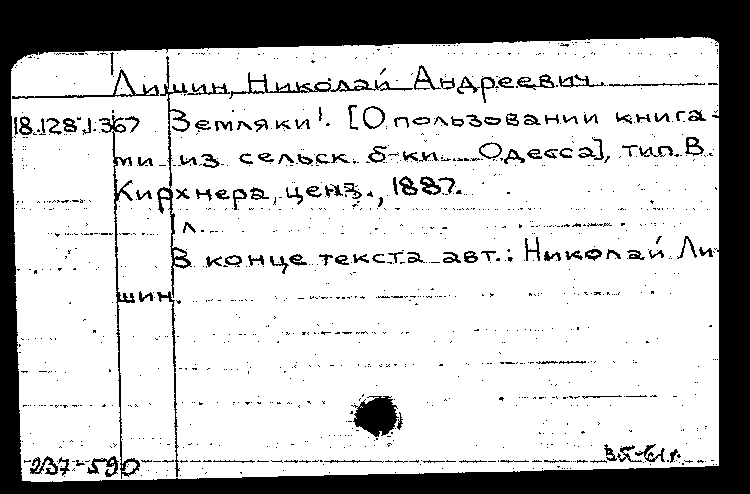 Лишин, Николай Андреевич.
18.128.1.367 Земляки! [О пользовании книга-
ми из сельск. б-ки. Одесса], тип. В.
Кирхнера, ценз., 1887.
1 л.
В конце текста авт.: Николай Ли-
шин.
237-590